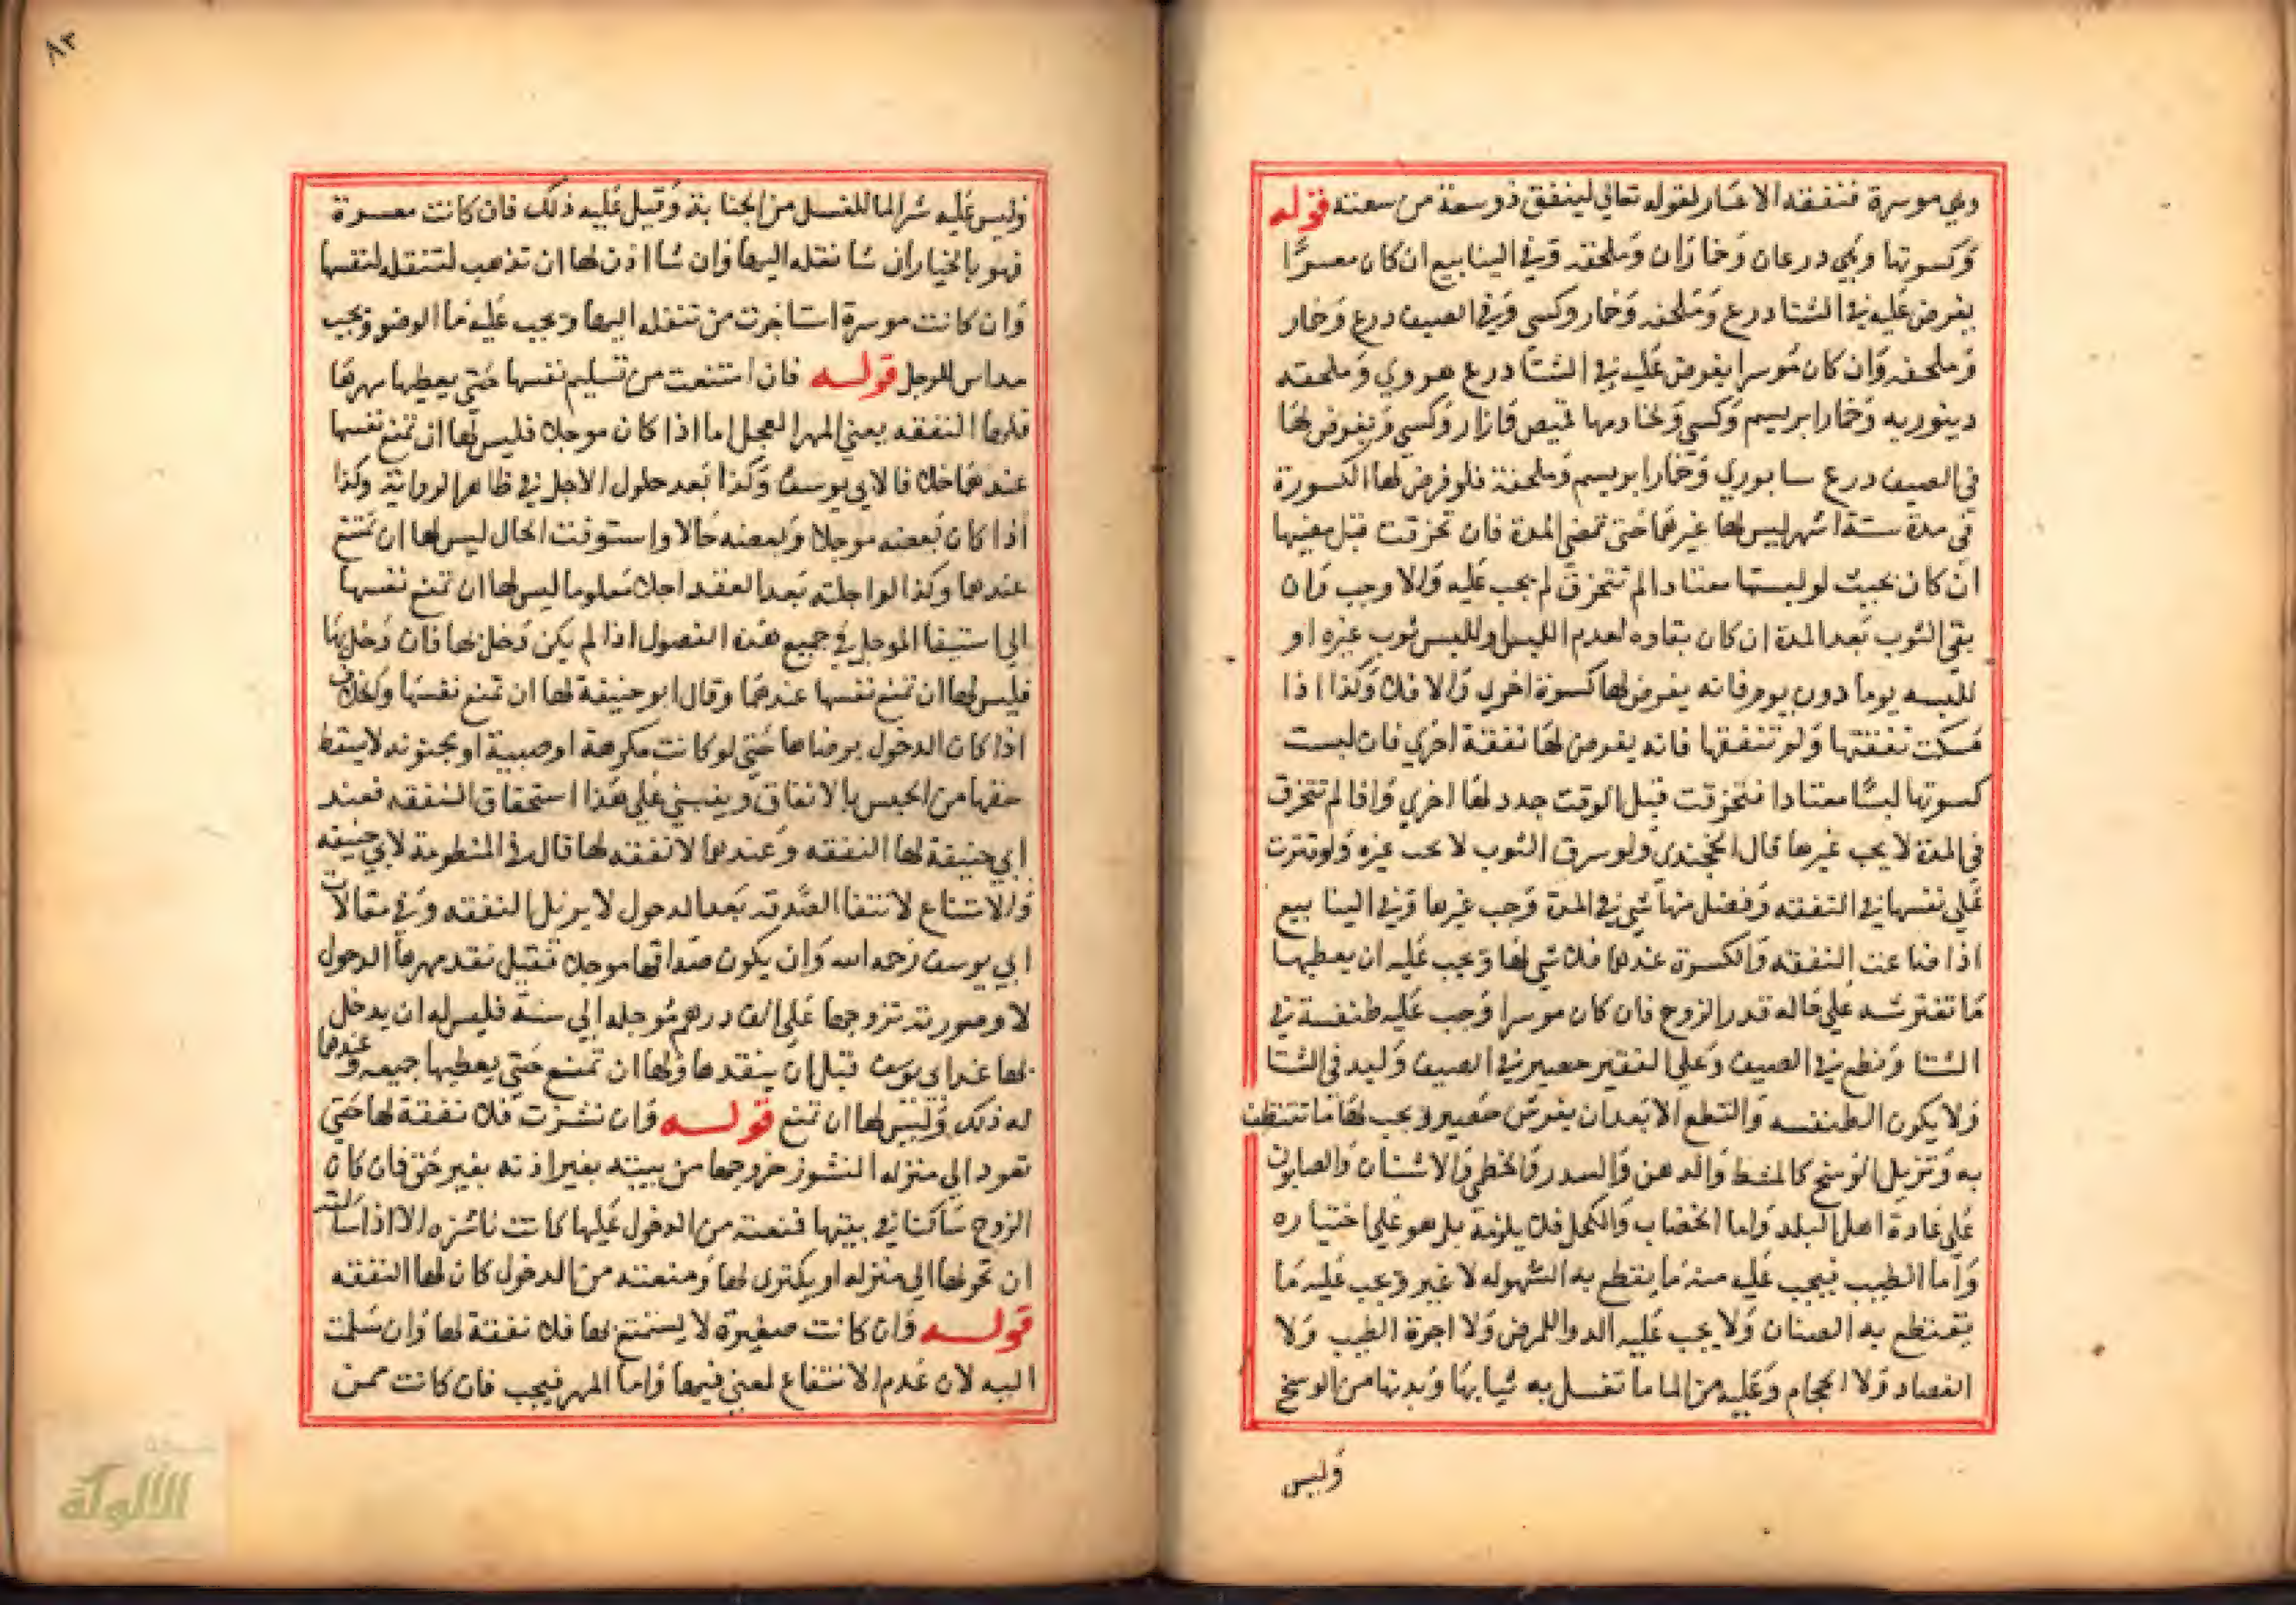 وهي موسرة فنفقة الاعسار لقوله تعالى لينفق ذو سعة من سعته قوله
وكسوتها وهي درعان وخماران وملحفة وفي الينابيع ان كان معسرا
يفرض عليه في الشتا درع وملحفه وخمار وكسي وفي الصيف درع وخمار
وملحفه وان كان موسرا يفرض عليه في الشتا درع هروي وملحفه
دينوريه وخمار ابريسم وكسي ولخادمها قميص وازار وكسي ويفرض لها
في الصيف درع سابوري وخمار ابريسم وملحفة فلو فرض لها الكسوة
في مدة ستة اشهر ليس لها غيرها حتى تمضي المدة فان تخرقت قبل مضيها
ان كان بحيث لو لبستها معتادا لم تتخرق لم يجب عليه والا وجب وان
بقي الثوب بعد المدة ان كان بقاوه لعدم اللبس او للبس ثوب غيره او
للبسه يوما دون يوم فانه يفرض لها كسوة اخري والا فلا وكذا اذا
مسكت نفقتها ولو تنفقها فانه يفرض لها نفقة اخري فان لبست
كسوتها لبسا معتادا فتخرقت قبل الوقت جدد لها اخري واذا لم تتخرق
في المدة لا يجب غيرها قال الخجندي ولو سرق الثوب لا يجب غيره ولو قترت
علي نفسها في النفقه وفضل منها شي في المدة وجب غيرها وفي الينابيع
اذا ضاعت النفقه والكسوة عندها فلا شي لها ويجب عليه ان يعطيها
ما تفترشه علي حاله قدر الزوج فان كان موسرا وجب عليه طنفسة في
الشتا ونطع في الصيف وعلي الفقير حصير في الصيف ولبد في الشتا
ولا يكون الطنفسه والنطع الا بعد ان يفرش حصير ويجب لها ما تتنظف
به وتزيل الوسخ كالمشط والدهن والسدر والخطمي والاشنان والصابون
علي عادة اهل البلد واما الخضاب والكحل فلا يلزمه بل هو علي اختياره
واما الطيب فيجب عليه منه ما يقطع به السهوله لا غير ويجب عليه ما
يقطع به الصنان ولا يجب عليه الدوا للمرض ولا اجرة الطبيب ولا
الفصاد ولا الحجام وعليه من الما ما تغسل به ثيابها وبدنها من الوسخ
وليس
٨٣
وليس عليه شرا الما للغسل من الجنابة وقيل عليه ذلك فان كانت معسرة
فهو بالخيار ان شا نقله اليها وان شا اذن لها ان تذهب لتنقل لنفسها
وان كانت موسرة استاجرت من تنقله اليها ويجب عليه ما الوضو ويجب
مداس للرجل قوله فان امتنعت من تسليم نفسها حتى يعطيها مهرها
فلها النفقه يعني المهر المعجل اما اذا كان موجلا فليس لها ان تمنع نفسها
عندهما خلافا لابي يوسف وكذا بعد حلول الاجل في ظاهر الرواية وكذا
اذا كان بعضه موجلا وبعضه حالا واستوفت الحال ليس لها ان تمتنع
عندهما وكذا لو اجلته بعد العقد اجلا معلوما ليس لها ان تمنع نفسها
الي استيفا الموجل في جميع هذه الفصول اذا لم يكن دخل بها فان دخل بها
فليس لها ان تمنع نفسها عندهما وقال ابو حنيفة لها ان تمنع نفسها والخلاف
اذا كان الدخول برضاها حتي لو كانت مكرهة او صبية او مجنونه لا يسقط
حقها من الحبس بالاتفاق وينبني علي هذا استحقاق النفقه فعند
ابي حنيفة لها النفقه وعندهما لا نفقه لها قال في المنظومة لابي حنيفه
والامتناع لانتفا الصدقه بعد الدخول لا يزيل النفقه وفي مقالات
ابي يوسف رحمه الله وان يكون صداقها موجلا تقبل نقد مهرها الدخول
لا وصورته تزوجها علي الف درهم موجله الي سنة فليس له ان يدخل
بها عند ابي يوسف قبل ان ينقدها ولها ان تمنع حتي يعطيها جميعه وعندهما
له ذلك وليس لها ان تمنع قوله وان نشزت فلا نفقة لها حتي
تعود الي منزله النشوز خروجها من بيته بغير اذنه بغير حق فان كان
الزوج ساكنا في بيتها فمنعته من الدخول عليها كانت ناشزه الا اذا سالته
ان تحولها الي منزله او يكتري لها ومنعته من الدخول كان لها النفقه
قوله وان كانت صغيرة لا يستمتع بها فلا نفقة لها وان سلمت
اليه لان عدم الانتفاع لمعني فيها واما المهر فيجب فان كانت ممن
الألوكة